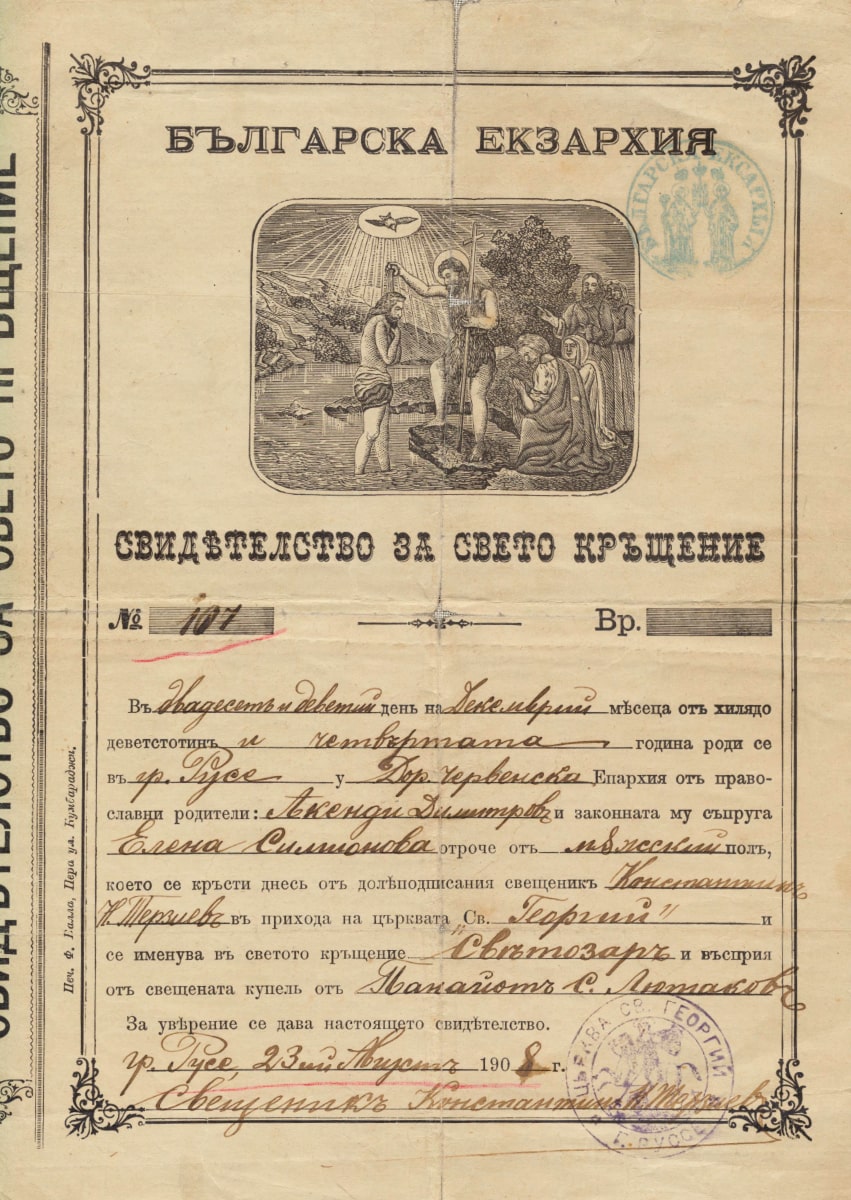 БЪЛГАРСКА ЕКЗАРХИЯ
БЪЛГАРСКА ЕКСАРХИЯ
СВИДѢТЕЛСТВО ЗА СВЕТО КРЪЩЕНИЕ
№ 107 Вр.
Въ двадесетъ и деветий день на Декемврий мѣсеца отъ хилядо
деветстотинъ и четвъртата година роди се
въ гр. Русе у Дор. Червенска Епархия отъ право-
славни родители: Акенди Димитровъ и законната му съпруга
Елена Симионова отроче отъ мѫжский полъ,
което се кръсти днесь отъ долѣподписания свещеникъ Константинъ
Н. Терзиевъ въ прихода на църквата Св. Георгий" и
се именува въ светото кръщение "Свѣтозаръ и въсприя
отъ свещената купель отъ Панайотъ С. Лютаковъ
За увѣрение се дава настоящето свидѣтелство.
гр. Русе, 23ий Августъ 1908 г.
Свещеникъ Константинъ Н. Терзиевъ
ЦЪРКВА СВ. ГЕОРГИЙ
Г. РУССЕ
Печ. Ф. Галла, Пера ул. Кумбараджи.
СВИДѢТЕЛСТВО ЗА СВЕТО КРЪЩЕНИЕ